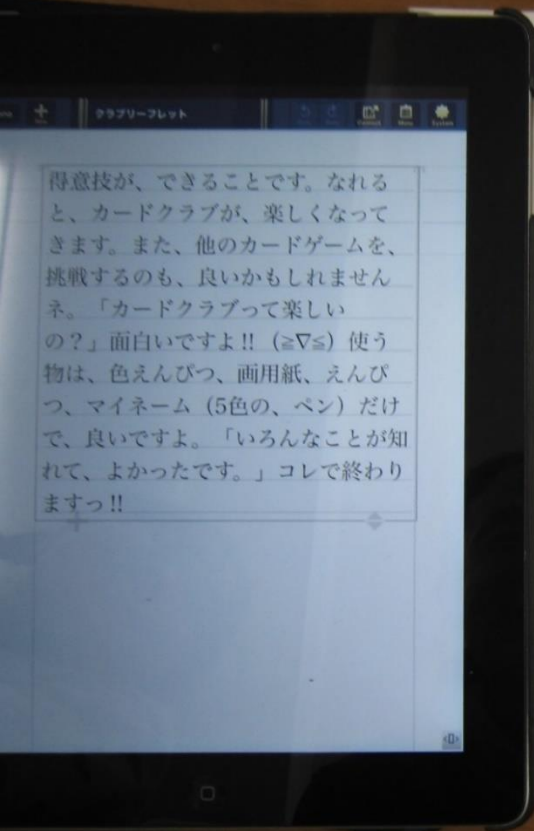 クラブリーフレット
得意技が、できることです。なれる
と、カードクラブが、楽しくなって
きます。また、他のカードゲームを、
挑戦するのも、良いかもしれません
ネ。「カードクラブって楽しい
の？」面白いですよ!!（≧∇≦）使う
物は、色えんぴつ、画用紙、えんぴ
つ、マイネーム（5色の、ペン）だけ
で、良いですよ。「いろんなことが知
れて、よかったです。」コレで終わり
ますっ!!